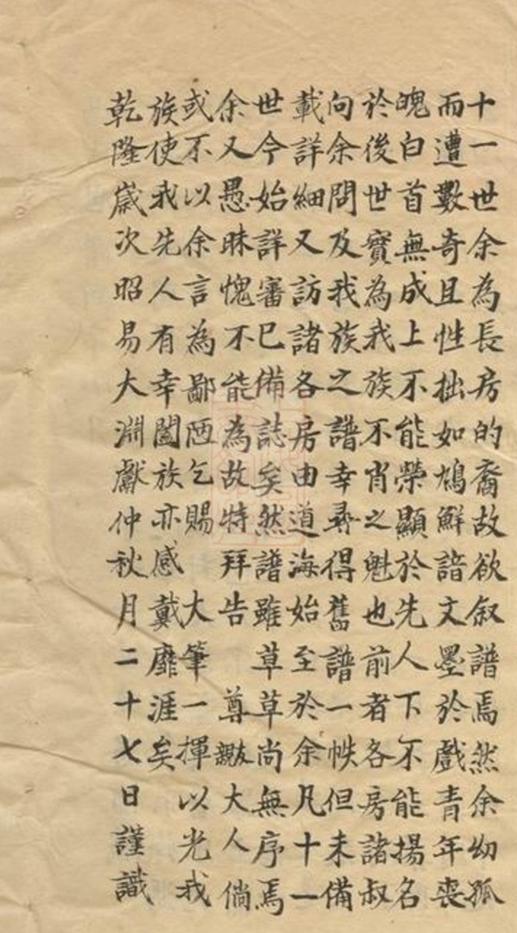 十一世余為長房的裔故欲叙譜焉然余幼孤
而遭數奇且性拙如鳩鮮諳文墨於戲青年喪
魄白首無成上不能榮顯於先人下不能揚名
於後世實為我族不肖之魁也前者各房諸叔
向余問及我族之譜幸尋得舊譜一帙但未備
載詳細又訪諸各房由道海始至於余凡十一
世今始詳審已備誌矣然譜雖草草尚無序焉
余又愚昧愧不能為故特拜告 尊 大人倘
或不以余言為鄙陋乞賜 大筆一揮以光我
族使我先人有幸闔族亦感戴靡涯矣
乾隆歲次昭昜大淵獻仲秋月二十七日謹識